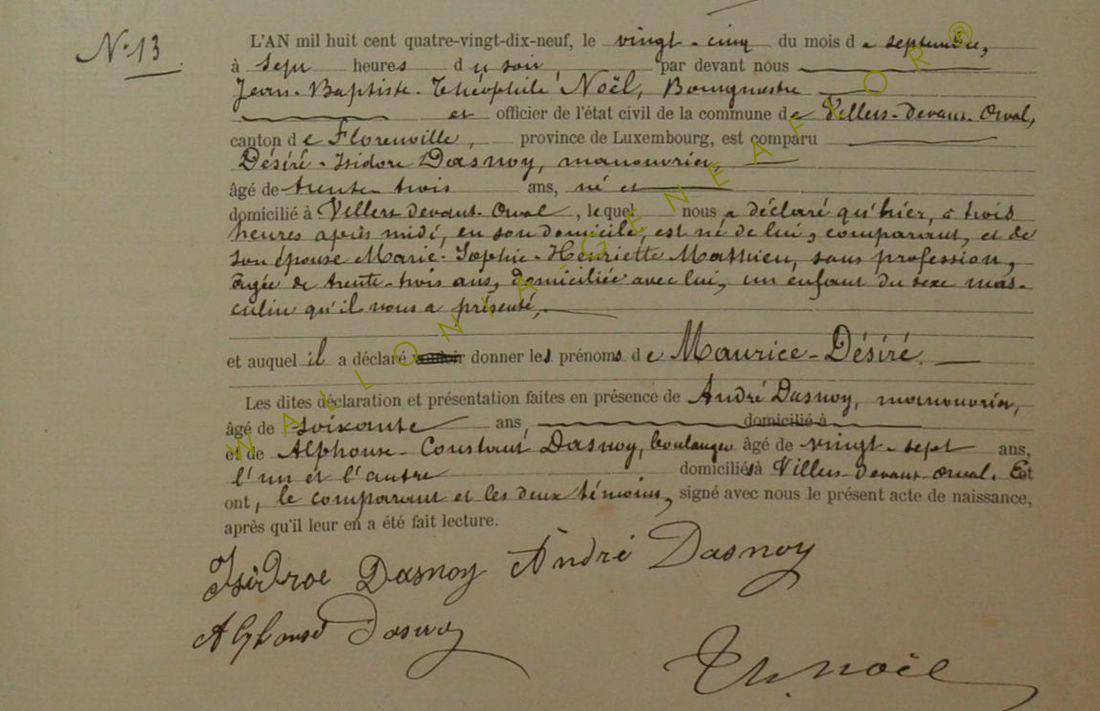 N° 13
L'AN mil huit cent quatre-vingt-dix-neuf, le vingt-cinq du mois de septembre,
à sept heures du soir par devant nous
Jean-Baptiste-Théophile Noël, Bourgmestre
et officier de l'état civil de la commune de Villers-devant-Orval,
canton de Florenville, province de Luxembourg, est comparu
Désiré-Isidore Dasnoy, manouvrier,
âgé de trente-trois ans, né et
domicilié à Villers devant-Orval, lequel nous a déclaré qu'hier, à trois
heures après midi, en son domicile, est né de lui, comparant, et de
son épouse Marie-Sophie-Henriette Mathieu, sans profession,
âgée de trente-trois ans, domiciliée avec lui, un enfant du sexe mas-
culin qu'il nous a présenté,
et auquel il a déclaré donner les prénoms de Maurice-Désiré.
Les dites déclaration et présentation faites en présence de André Dasnoy, manouvrier,
âgé de soixante ans, domicilié à
et de Alphonse-Constant Dasnoy, boulanger âgé de vingt-sept ans,
l'un et l'autre domiciliés à Villers-devant-Orval. Et
ont, le comparant et les deux témoins, signé avec nous le présent acte de naissance,
après qu'il leur en a été fait lecture.
Isidroe Dasnoy André Dasnoy
Alphonse Dasnoy
Th. Noël
WALLONIA GENEAFOR®